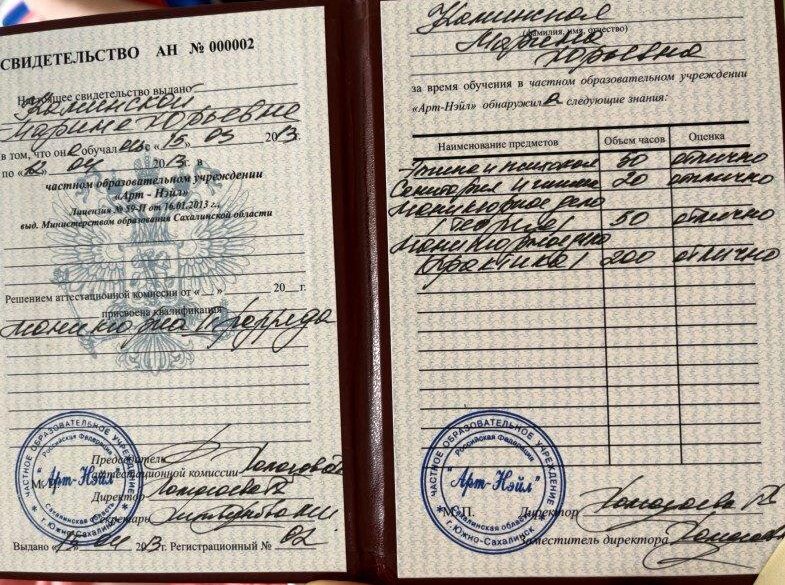 СВИДЕТЕЛЬСТВО АН № 000002
Настоящее свидетельство выдано
Каминской
Марине Юрьевне
в том, что он а обучал ась с «15» 03 2013 г.
по «12» 04 2013 г. в
частном образовательном учреждении
«Арт - Нэйл»
Лицензия № 59-П от 16.01.2013 г.,
выд. Министерством образования Сахалинской области
Решением аттестационной комиссии от «__» 20__ г.
присвоена квалификация
маникюрша разряда
Председатель
аттестационной комиссии
Директор
Секретарь
Выдано 04 2013 г. Регистрационный № 02
ЧАСТНОЕ ОБРАЗОВАТЕЛЬНОЕ УЧРЕЖДЕНИЕ
Российская Федерация
"Арт-Нэйл"
Сахалинская область
г. Южно-Сахалинск
Каминская
(фамилия, имя, отчество)
Марина
Юрьевна
за время обучения в частном образовательном учреждении
«Арт-Нэйл» обнаружил а следующие знания:
Наименование предметов Объем часов Оценка
Этика и психология 50 отлично
Санитария и гигиена 20 отлично
Маникюрное дело
(теория) 50 отлично
Маникюрное дело
(практика) 200 отлично
ЧАСТНОЕ ОБРАЗОВАТЕЛЬНОЕ УЧРЕЖДЕНИЕ
Российская Федерация
"Арт-Нэйл"
Сахалинская область
г. Южно-Сахалинск
М.П. Директор
Заместитель директора